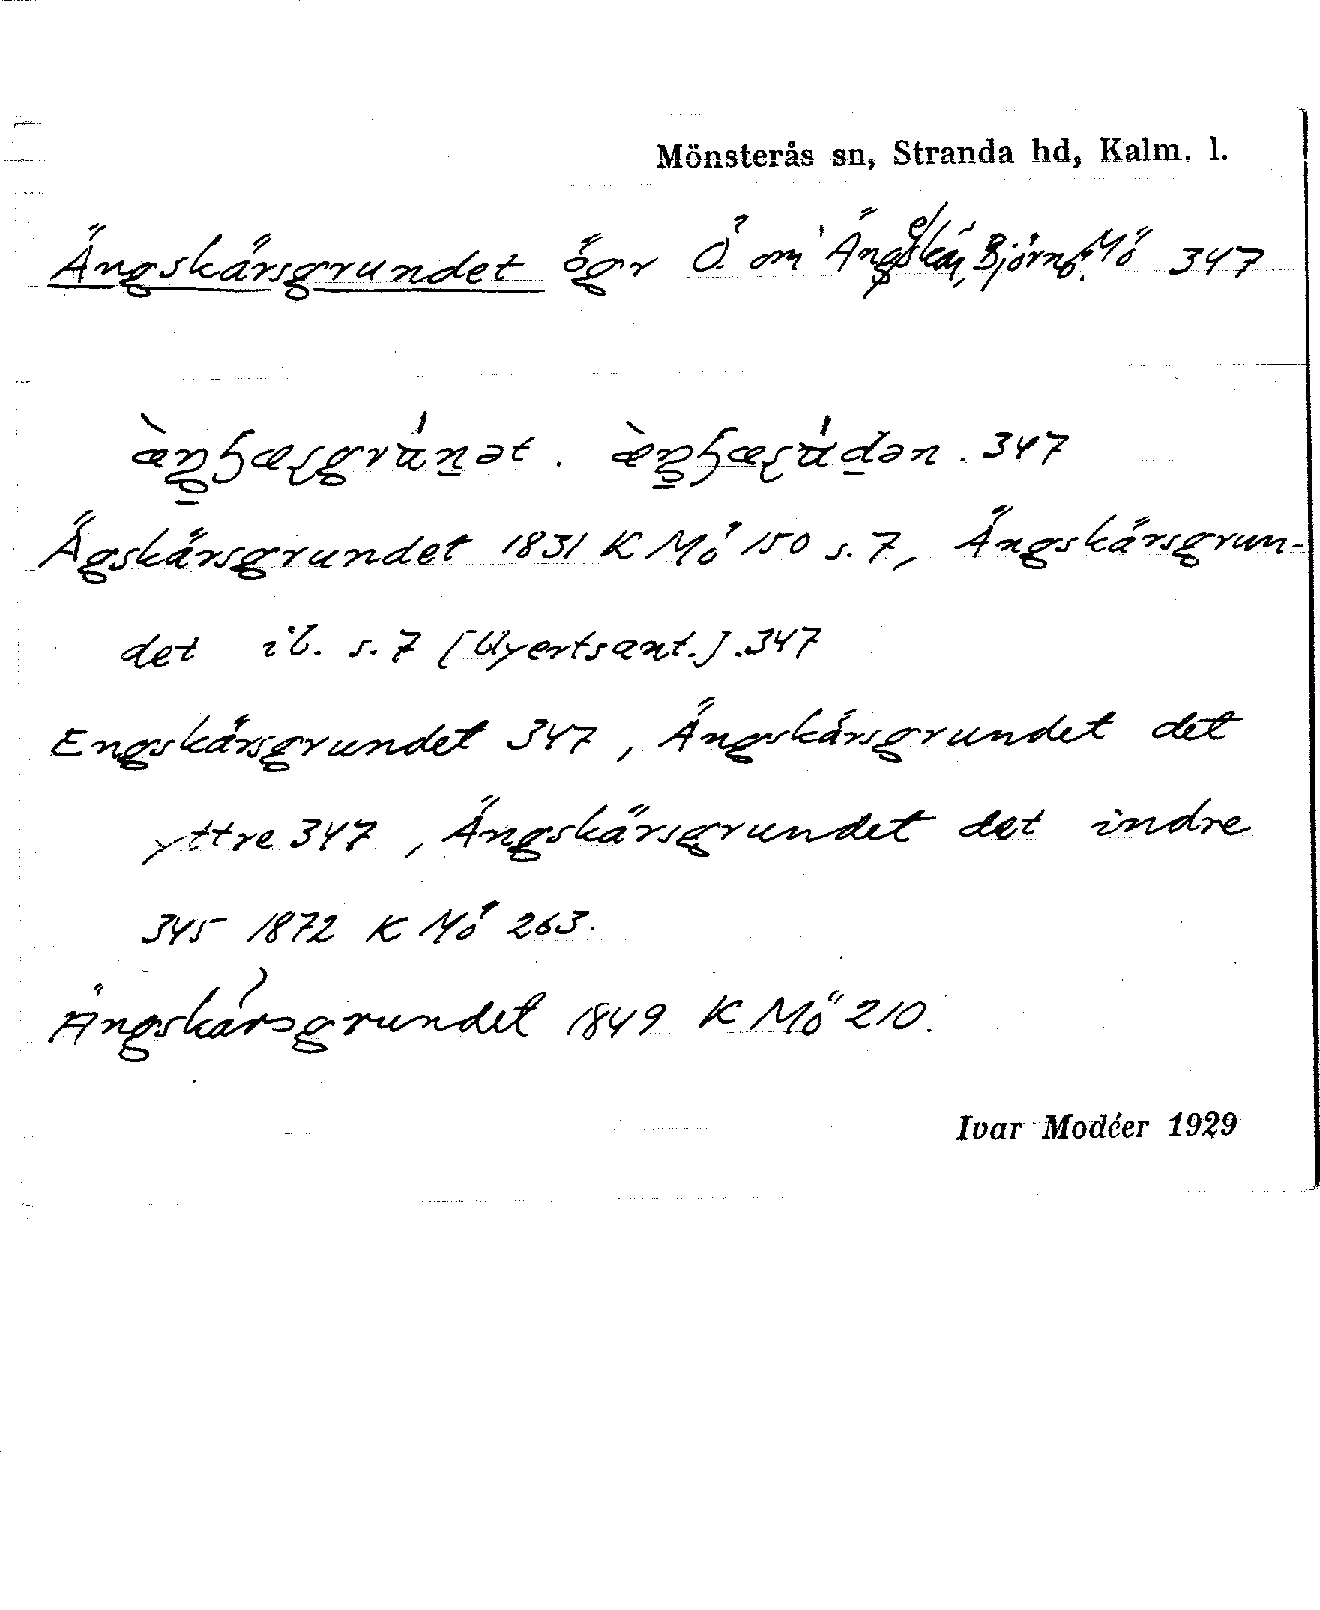 Mönsterås sn, Stranda hd, Kalm. l.
Ängskärsgrundet ögr Ö. om Ängskär, Björnö. Mö 347
347
Ägskärsgrundet 1831 K Mö 150 s. 7, Ängskärsgrun-
det ib. s. 7 [Uyertsant.]. 347
Engskärsgrundet 347, Ängskärsgrundet det
yttre 347, Ängskärsgrundet det indre
345 1872 K Mö 263.
Ängskärsgrundet 1849 K Mö 210.
Ivar Modéer 1929